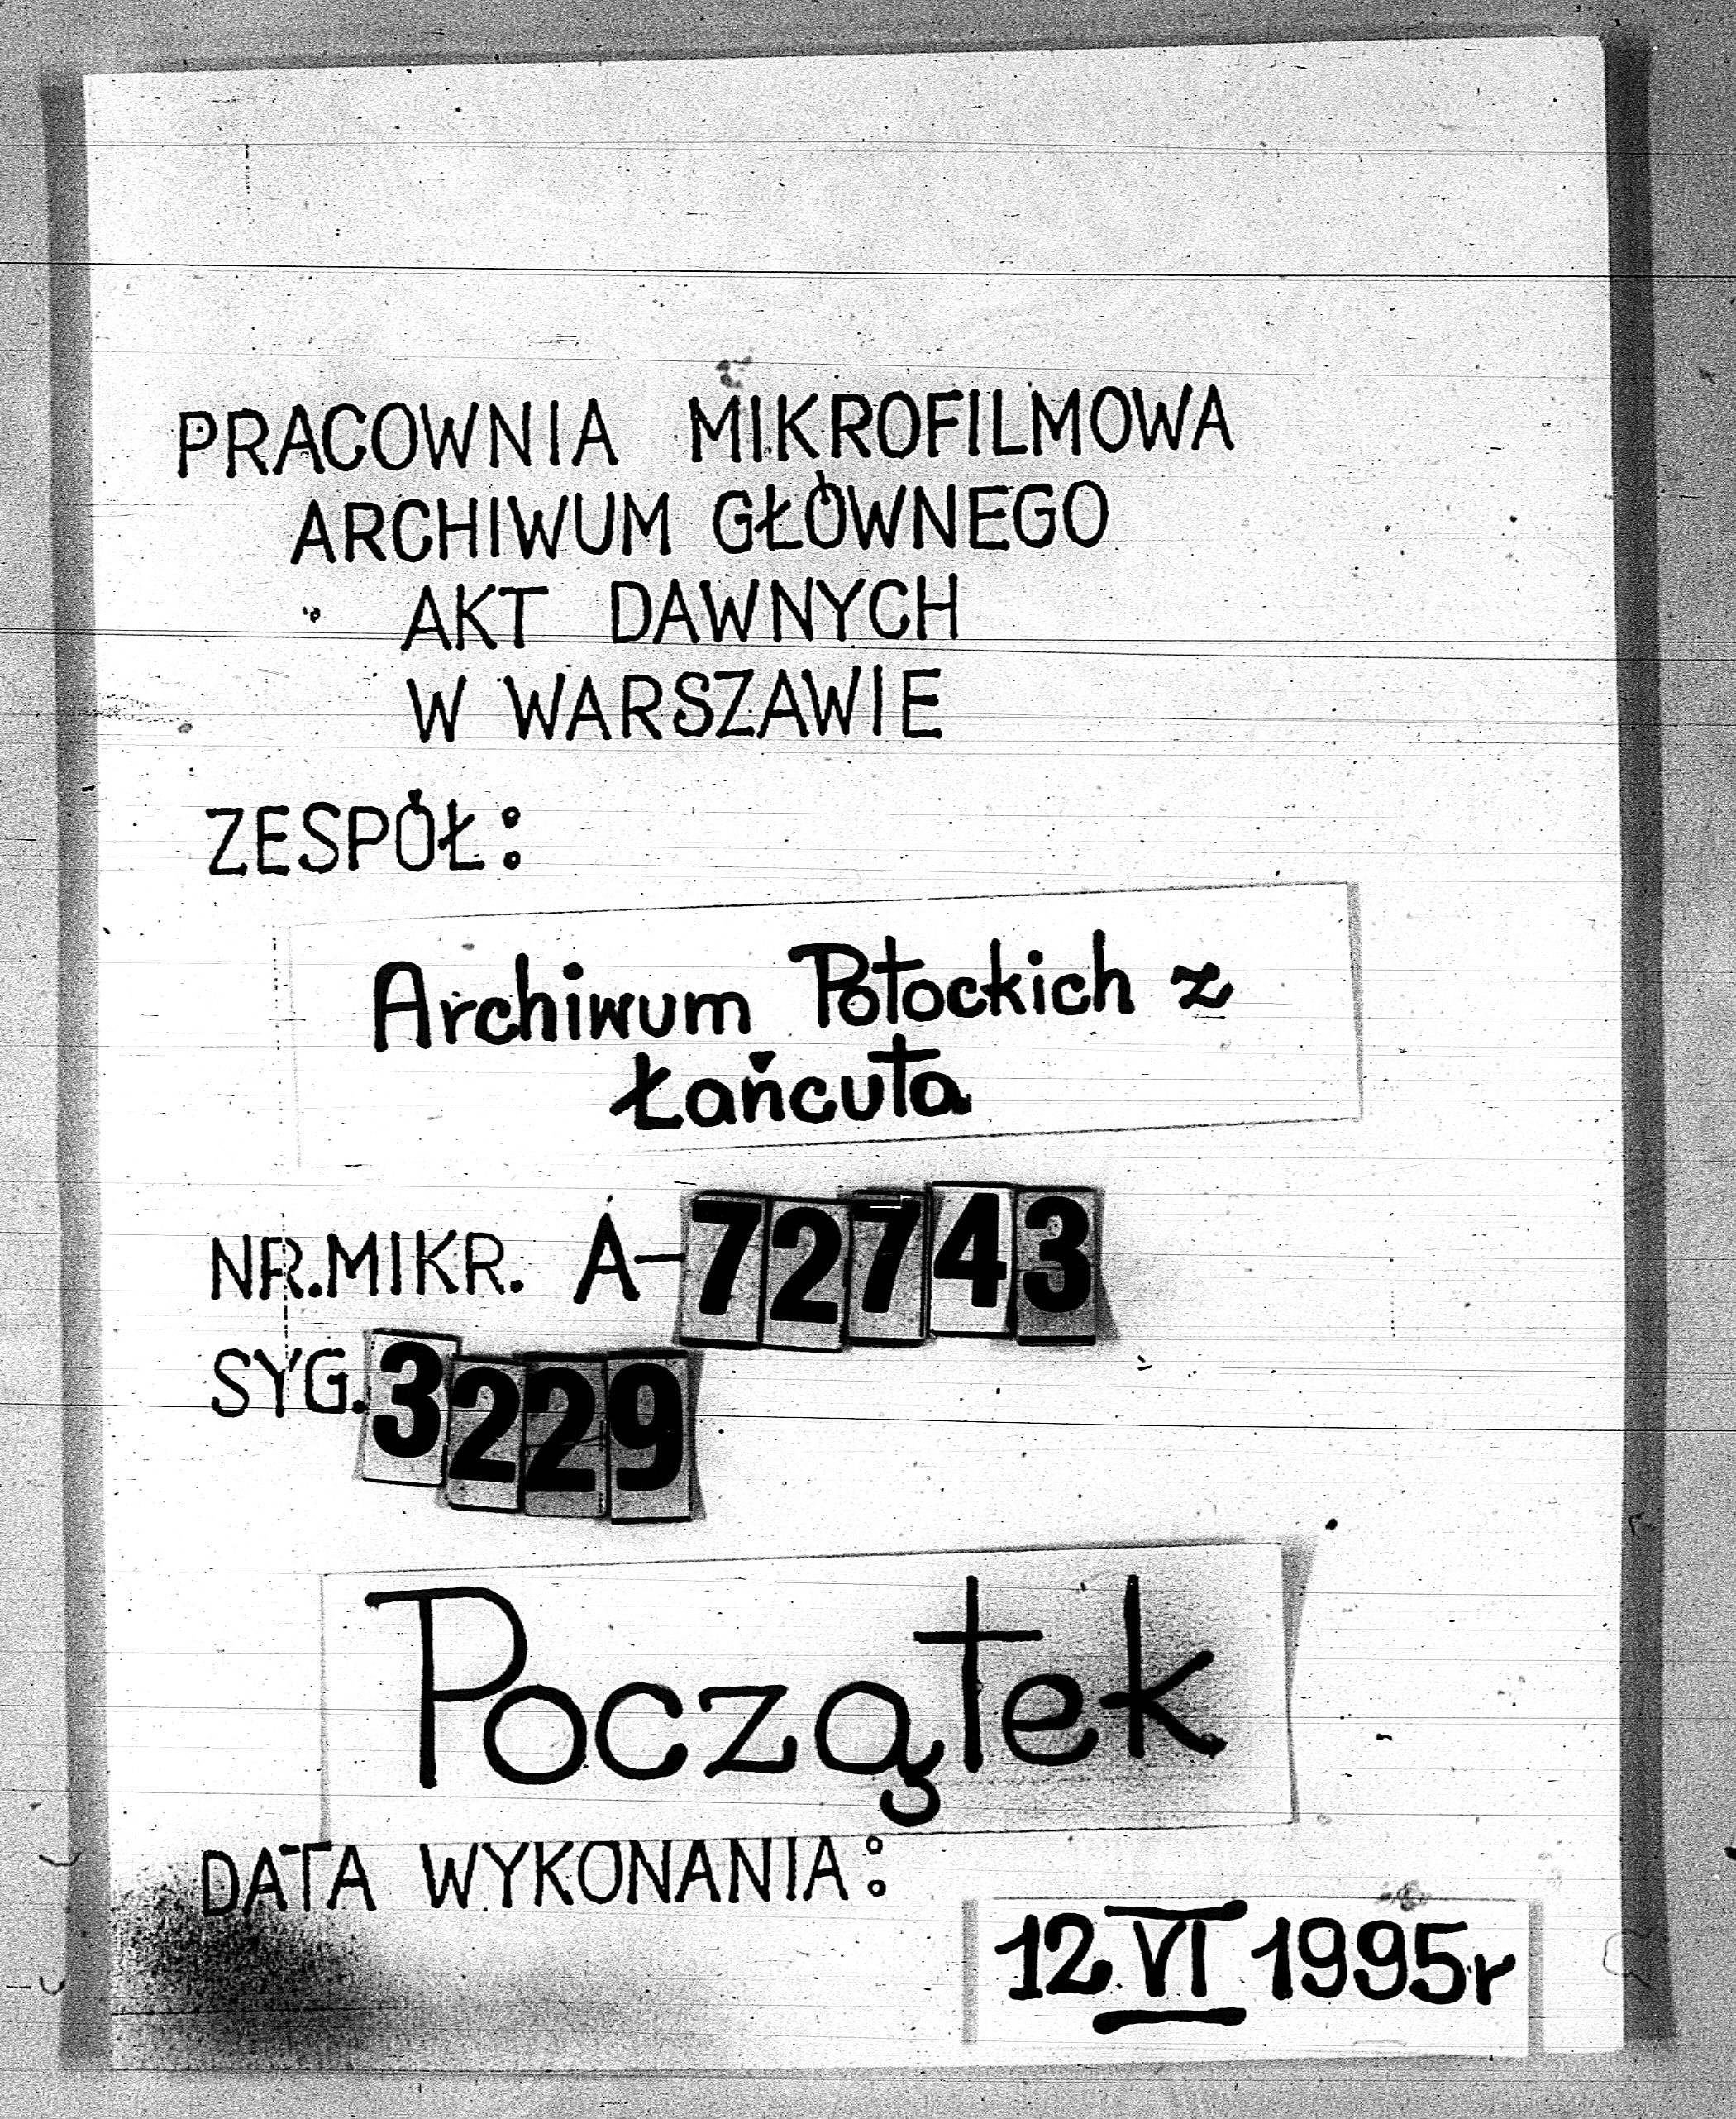 PRACOWNIA MIKROFILMOWA
ARCHIWUM GŁÓWNEGO
AKT DAWNYCH
W WARSZAWIE
ZESPÓŁ:
Archiwum Potockich z
Łańcuta
NR.MIKR. A-72743
SYG.3229
Początek
DATA WYKONANIA:
12 VI 1995r